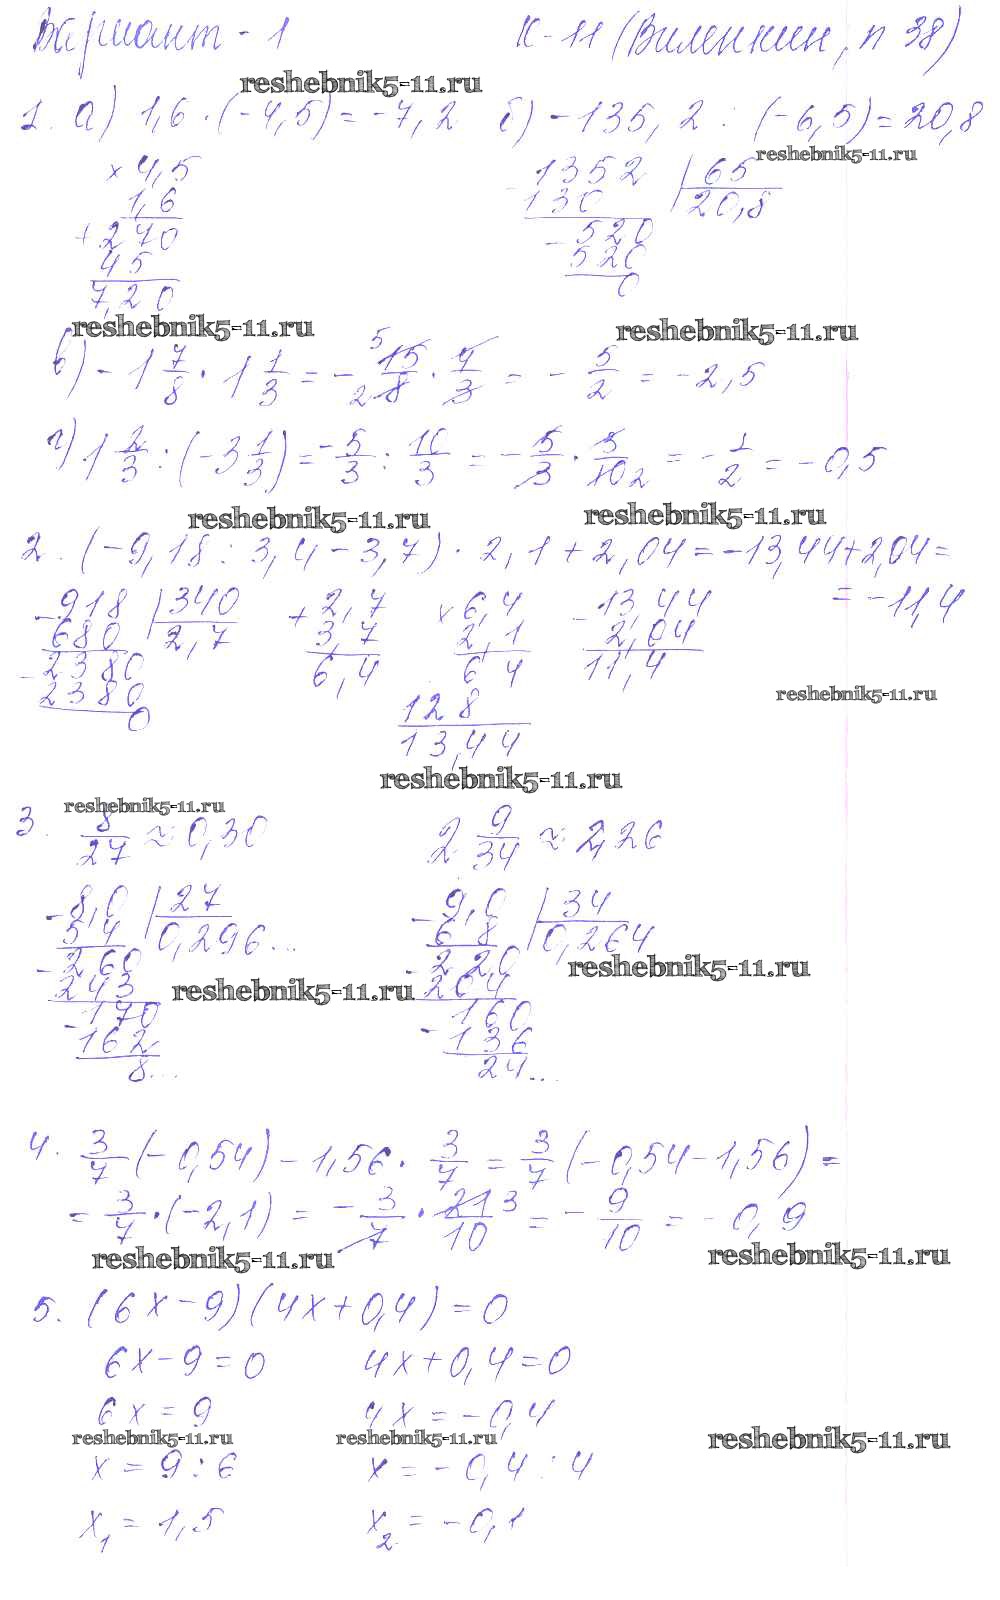 Вариант - 1 К-11 (Виленкин, п 38)
reshebnik5-11.ru
1. а) 1,6 · (-4,5) = -7,2 б) -135,2 : (-6,5) = 20,8
reshebnik5-11.ru
× 4,5 - 1352 | 65
1,6 130 20,8
+ 270 - 520
45 520
7,20 0
reshebnik5-11.ru reshebnik5-11.ru
в) -1 7/8 · 1 1/3 = - 15/8 · 4/3 = - 5/2 = -2,5
5 2
г) 1 2/3 : (-3 1/3) = - 5/3 : 10/3 = - 5/3 · 3/10 2 = - 1/2 = -0,5
reshebnik5-11.ru reshebnik5-11.ru
2. (-9,18 : 3,4 - 3,7) · 2,1 + 2,04 = -13,44 + 2,04 =
= -11,4
- 918 | 340 + 2,7 × 6,4 - 13,44
680 2,7 3,7 2,1 2,04
- 2380 6,4 6 4 11,4
2380 128
0 13,44
reshebnik5-11.ru
reshebnik5-11.ru
reshebnik5-11.ru
3. 8/27 ≈ 0,30 2 9/34 ≈ 2,26
- 8,0 | 27 - 9,0 | 34
54 0,296... 68 0,264
- 260 - 22,0
243 204
- 170 - 160
162 136
8... 24...
reshebnik5-11.ru reshebnik5-11.ru
4. 3/7 (-0,54) - 1,56 · 3/7 = 3/7 (-0,54 - 1,56) =
= 3/7 · (-2,1) = - 3/7 · 21/10 3 = - 9/10 = -0,9
reshebnik5-11.ru reshebnik5-11.ru
5. (6x - 9)(4x + 0,4) = 0
6x - 9 = 0 4x + 0,4 = 0
6x = 9 4x = -0,4
reshebnik5-11.ru reshebnik5-11.ru reshebnik5-11.ru
x = 9 : 6 x = -0,4 : 4
x₁ = 1,5 x₂ = -0,1